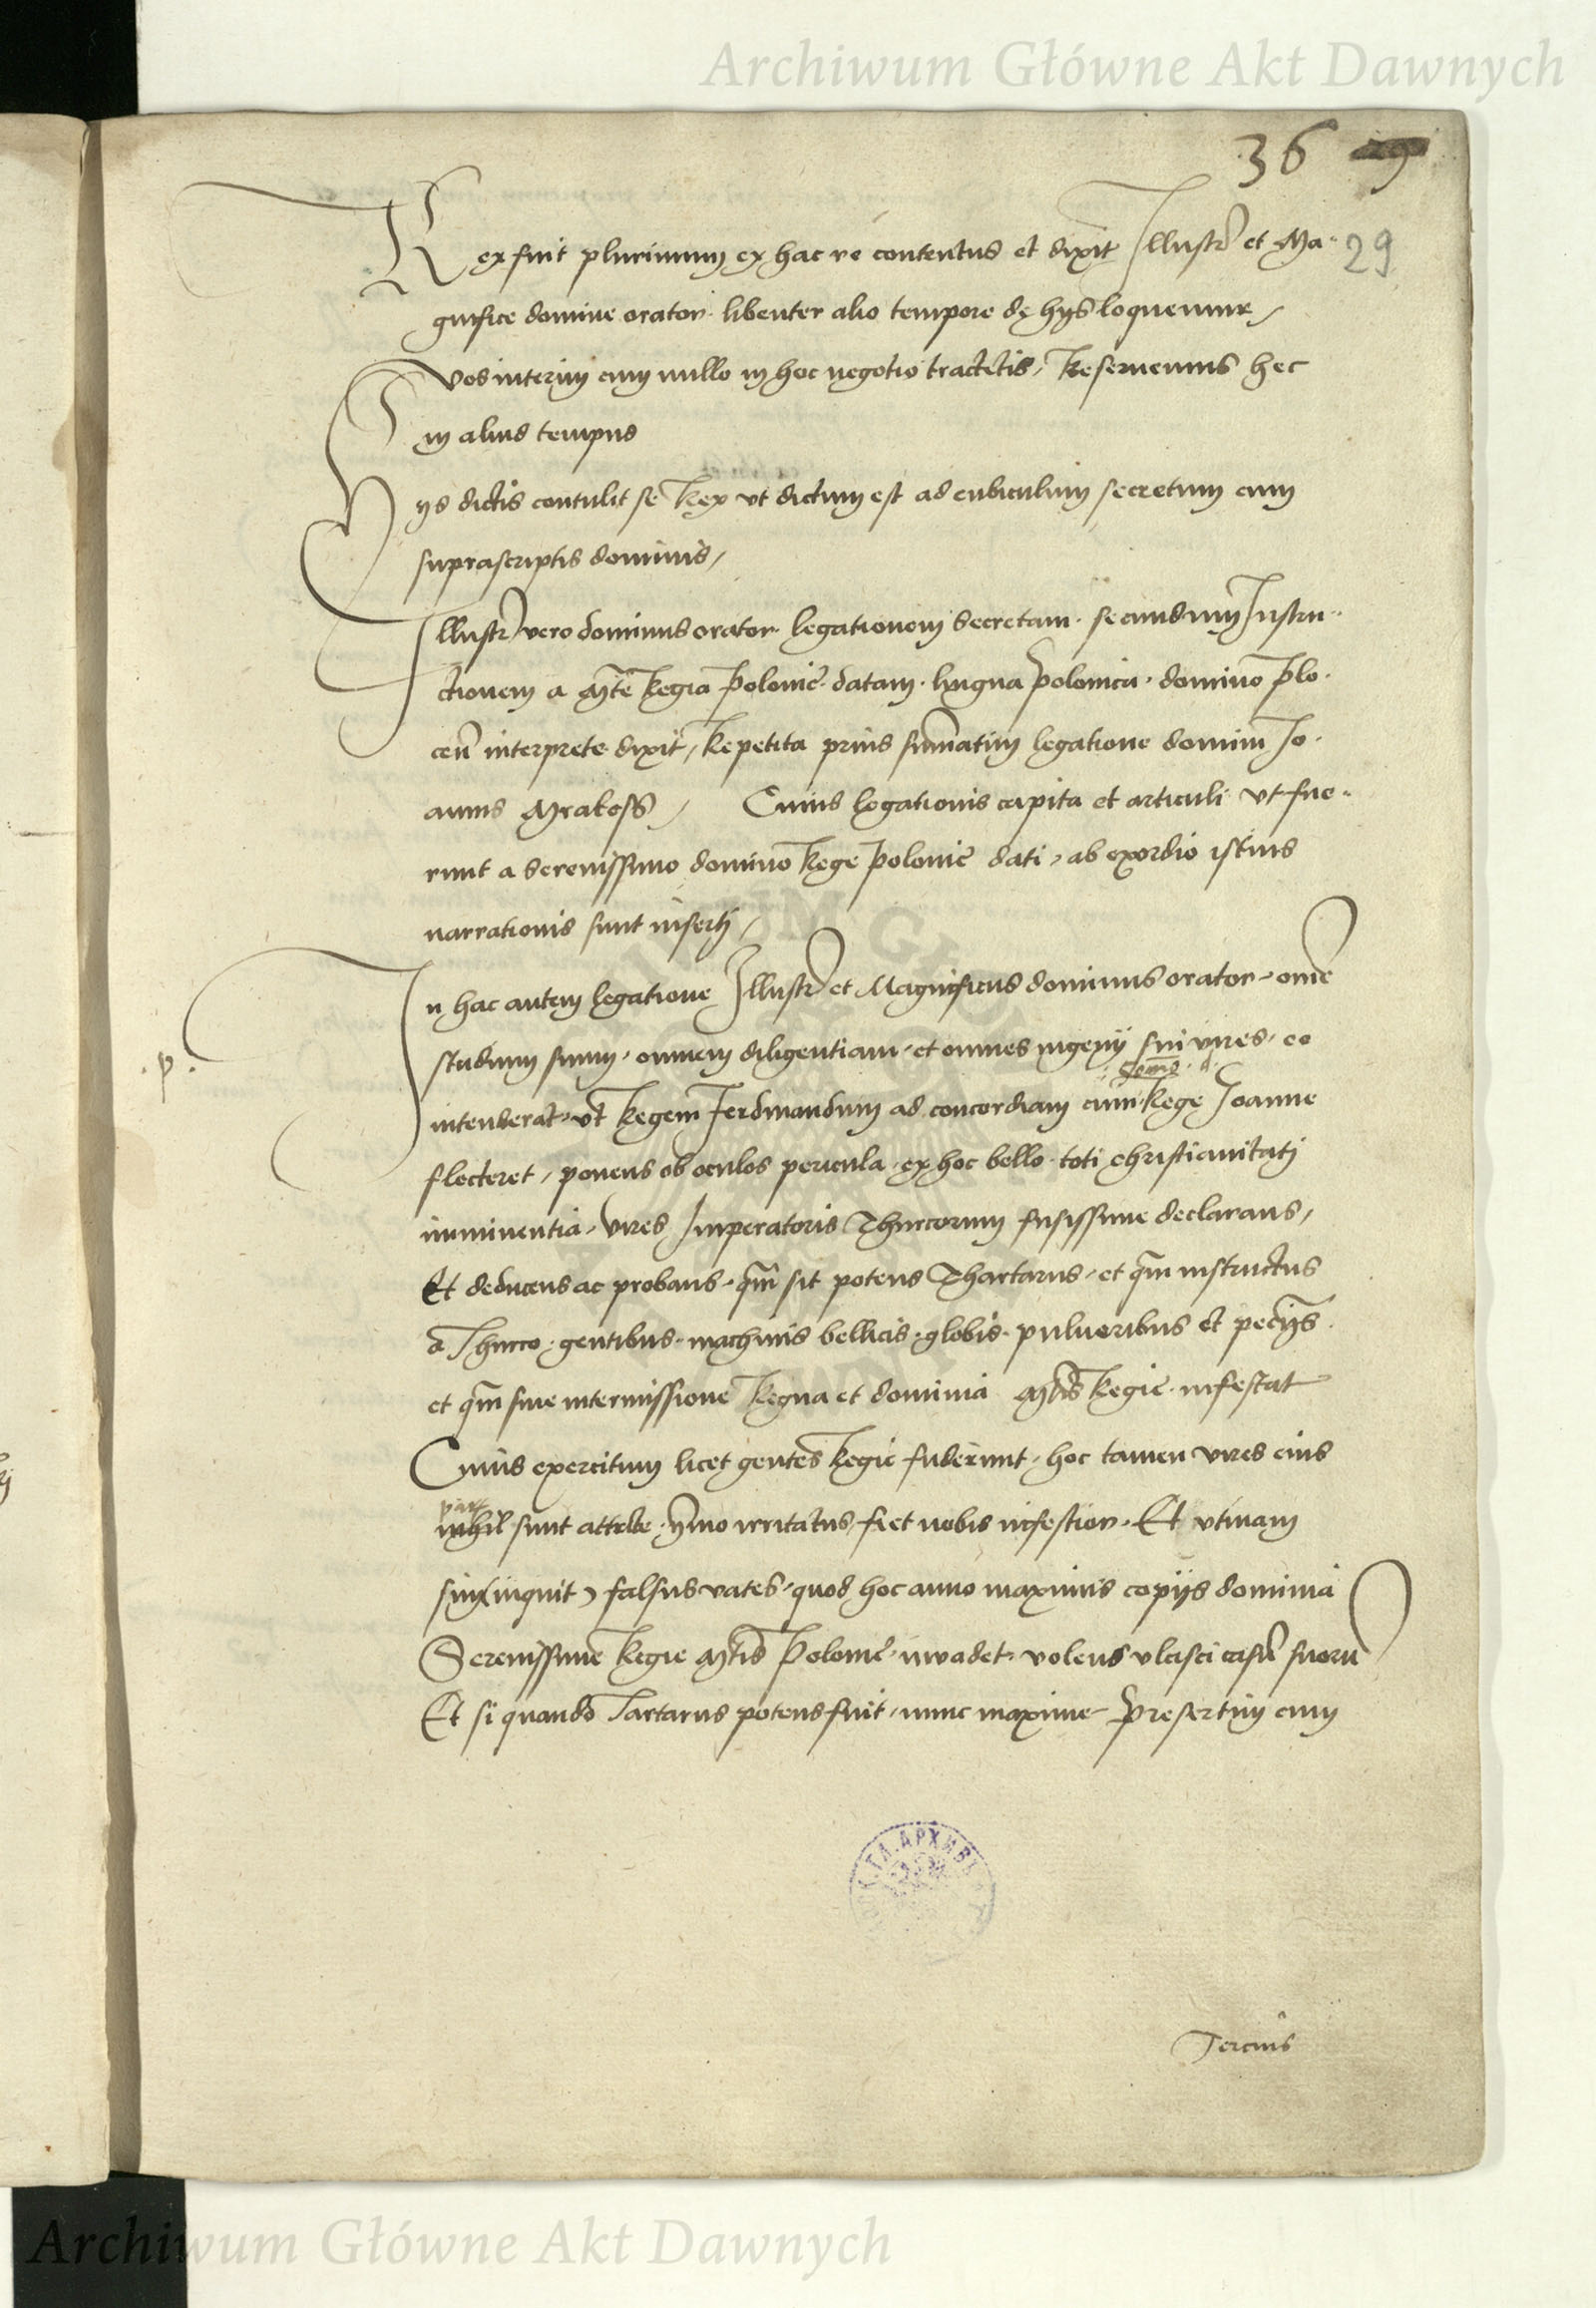 Archiwum Główne Akt Dawnych
36
29
Rex fuit plurimum ex hac re contentus et dixit Illustr et Ma-
gnifice domine orator libenter alio tempore de hijs loquemur /
vos interim cum nullo in hoc negotio tractetis, Reseruemus hec
in alius tempus
Hijs dictis contulit se Rex vt dictum est ad cubiculum secretum cum
suprascriptis dominis /
Illustr vero dominus orator legationem secretam secundum Instru-
ctionem a Mte Regia Polonie datam lingua polonica domino Plo-
ceñ interprete dixit, Repetita prius summatim legatione domini Jo-
annis Mrakess / Cuius legationis capita et articuli vt fue-
runt a serenissimo domino Rege Polonie dati, ab exordio istius
narrationis sunt inserti /
In hac autem legatione Illustr et Magnificus dominus orator ome
.p. studium suum omnem diligentiam et omnes ingenij sui vires eo
intenderat vt Regem Ferdinandum ad concordiam cum Rege Joanne
flecteret, ponens ob oculos pericula ex hoc bello toti christianitati
imminentia, vires Imperatoris Thurcorum fusissime declarans,
Et deducens ac probans qm sit potens Thartarus et qm instructus
a Thurco gentibus machinis bellicis globis pulueribus et pecijs
et qm sine intermissione Regna et dominia Mtis Regie infestat
Cuius exercitum licet gentes Regie fuderunt, hoc tamen vires eius
nihil sunt attrite ymo irritatus fiet nobis infestior Et vtinam
sim (inquit) falsus vates quod hoc anno maximis copijs dominia
Serenissime Regie Mtis Polonie inuadet volens vlcisci casū suorū
Et si quando Tartarus potens fuit, nunc maxime presertim cum
Tercius
Archiwum Główne Akt Dawnych